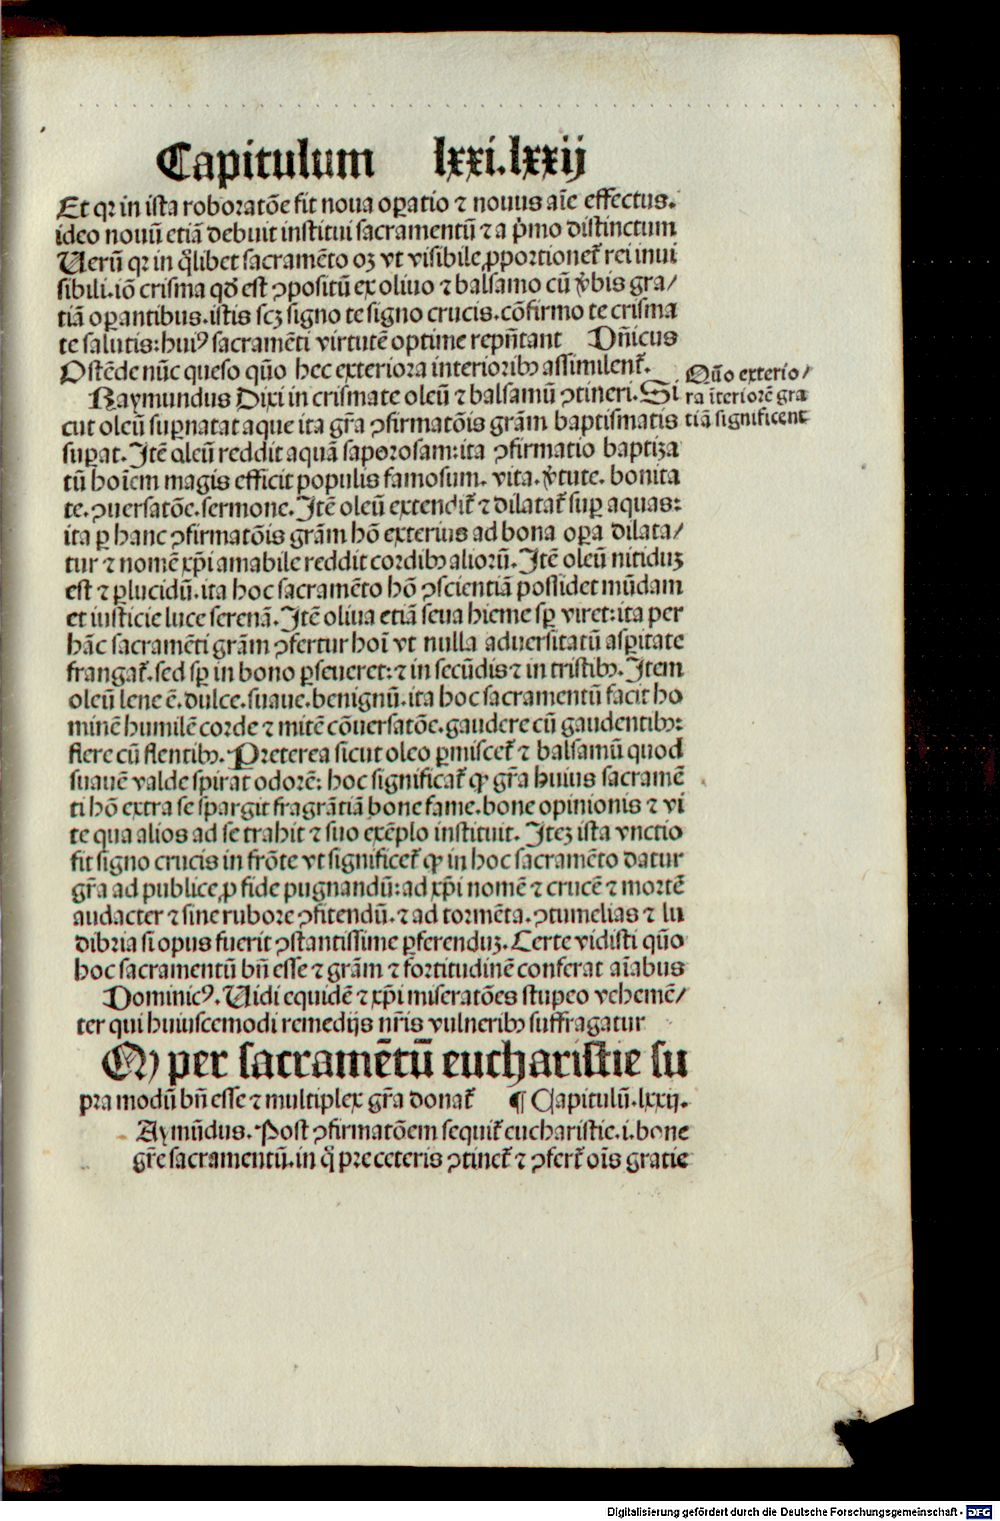 Capitulum lxxi.lxxij
Et qꝛ in ista roboratōe fit noua oꝑatio ⁊ nouus aīe effectus.
ideo nouū etiā debuit institui sacramentū ⁊ a pͥmo distinctum
Uerū qꝛ in qͦlibet sacramēto oꝫ vt visibile ꝓportionet᷑ rei inui
sibili.iō crisma qd̓ est ꝯpositū ex oliuo ⁊ balsamo cū v̓bis gra/
tiā oꝑantibus.istis scꝫ signo te signo crucis.cōfirmo te crisma
te salutis:huiꝰ sacramēti virtutē optime repn̄tant Dn̄icus
Ostēde nūc queso quō hec exteriora interioribꝰ assimilent᷑.
Raymundus Dixi in crismate oleū ⁊ balsamū ꝯtineri.Si
cut oleū suꝑnatat aque ita gr̄a ꝯfirmatōis grām baptismatis
suꝑat.Itē oleū reddit aquā saporosam:ita ꝯfirmatio baptiza
tū hoīem magis efficit populis famosum.vita.v̓tute.bonita
te.ꝯuersatōe.sermone.Itē oleū extendit᷑ ⁊ dilatat᷑ suꝑ aquas:
ita ꝑ hanc ꝯfirmatōis grām hō exterius ad bona oꝑa dilata/
tur ⁊ nomē xp̄i amabile reddit cordibꝰ aliorū.Itē oleū nitiduꝫ
est ⁊ ꝑlucidū.ita hoc sacramēto hō ꝯscientiā possidet mūdam
et iusticie luce serenā.Itē oliua etiā seua hieme sꝑ viret:ita per
hāc sacramēti grām ꝯfertur hoī vt nulla aduersitatū asꝑitate
frangat᷑.sed sꝑ in bono ꝑseueret:⁊ in secūdis ⁊ in tristibꝰ.Item
oleū lene ē.dulce.suaue.benignū.ita hoc sacramentū facit ho
minē humilē corde ⁊ mitē cōuersatōe.gaudere cū gaudentibꝰ:
flere cū flentibꝰ.Preterea sicut oleo ꝑmiscet᷑ ⁊ balsamū quod
suauē valde spirat odorē:hoc significat᷑ ꝙ gr̄a huius sacramē
ti hō extra se spargit fragrātiā bone fame.bone opinionis ⁊ vi
te qua alios ad se trahit ⁊ suo exēplo instituit. Iteꝫ ista vnctio
fit signo crucis in frōte vt significet᷑ ꝙ in hoc sacramēto datur
gr̄a ad publice ꝓ fide pugnandū:ad xp̄i nomē ⁊ crucē ⁊ mortē
audacter ⁊ sine rubore ꝯfitendū.⁊ ad tormēta.ꝯtumelias ⁊ lu
dibria si opus fuerit ꝯstantissime ꝑferenduꝫ.Certe vidisti quō
hoc sacramentū bn̄ esse ⁊ grām ⁊ fortitudinē conferat aīabus
Dominicꝰ.Uidi equidē ⁊ xp̄i miseratōes stupeo vehemē/
ter qui huiuscemodi remedijs nr̄is vulneribꝰ suffragatur
Quō exterio/
ra īteriorē gra
tiā significent
Ꝙ per sacramētū eucharistie su
pra modū bn̄ esse ⁊ multiplex gr̄a donat᷑ ¶ Capitulū.lxxij.
Aymūdus.Post ꝯfirmatōem sequit᷑ eucharistie.i.bone
gr̄e sacramentū.in qͦ pre ceteris ꝯtinet᷑ ⁊ ꝯfert᷑ oīs gratie
Digitalisierung gefördert durch die Deutsche Forschungsgemeinschaft - DFG